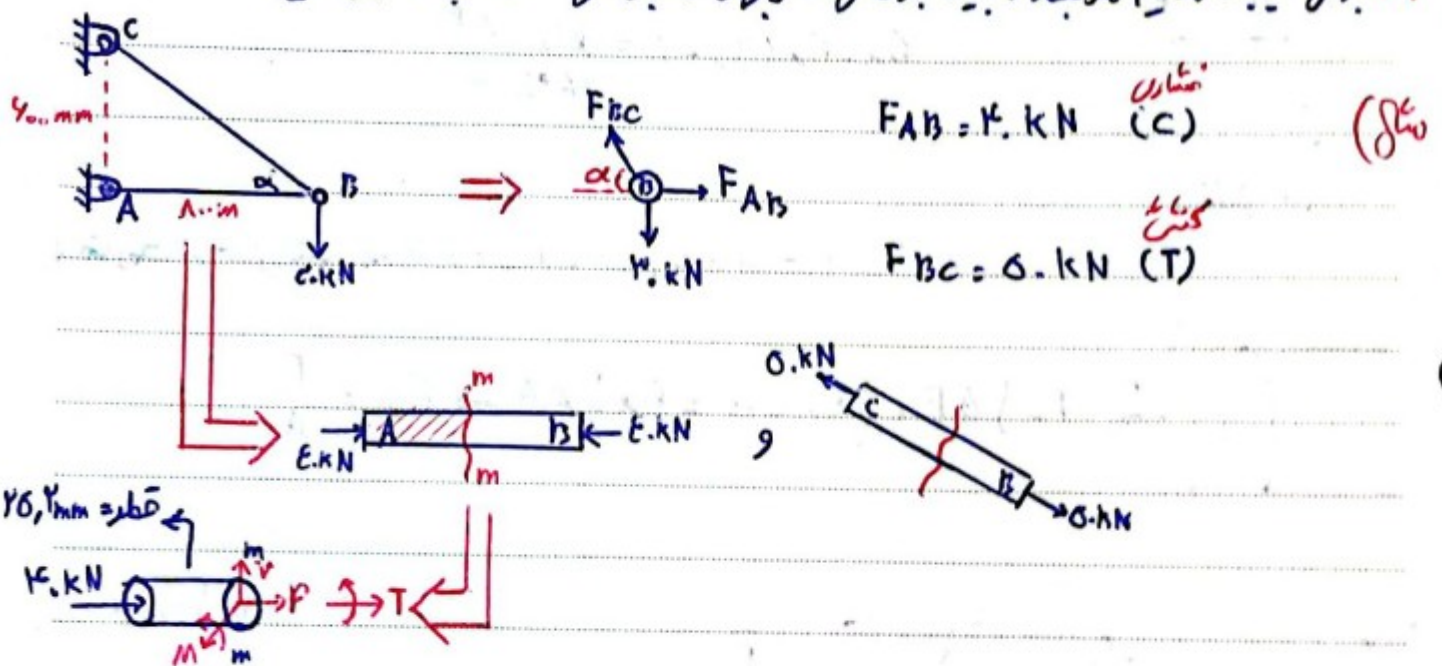 C
۶۰۰ mm
A
۸۰۰ m
α
B
۳۰ kN
F BC
α
B
F AB
۳۰ kN
F AB = ۴۰ kN (C)
فشاری
F BC = ۵۰ kN (T)
کششی
۴۰ kN
A
m
m
B
۴۰ kN
و
۵۰ kN
C
B
۵۰ kN
قطر = ۲۵,۲ mm
۴۰ kN
m
V
F
T
M
m